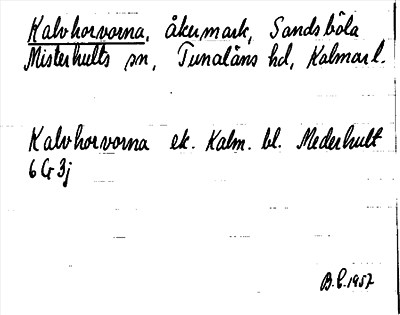 Kalvhorvorna, åkermark, Sandsböla
Misterhults sn, Tunaläns hd, Kalmar l.
Kalvhorvorna ek. Kalm. bl. Mederhult
6G3j
B.E.1957